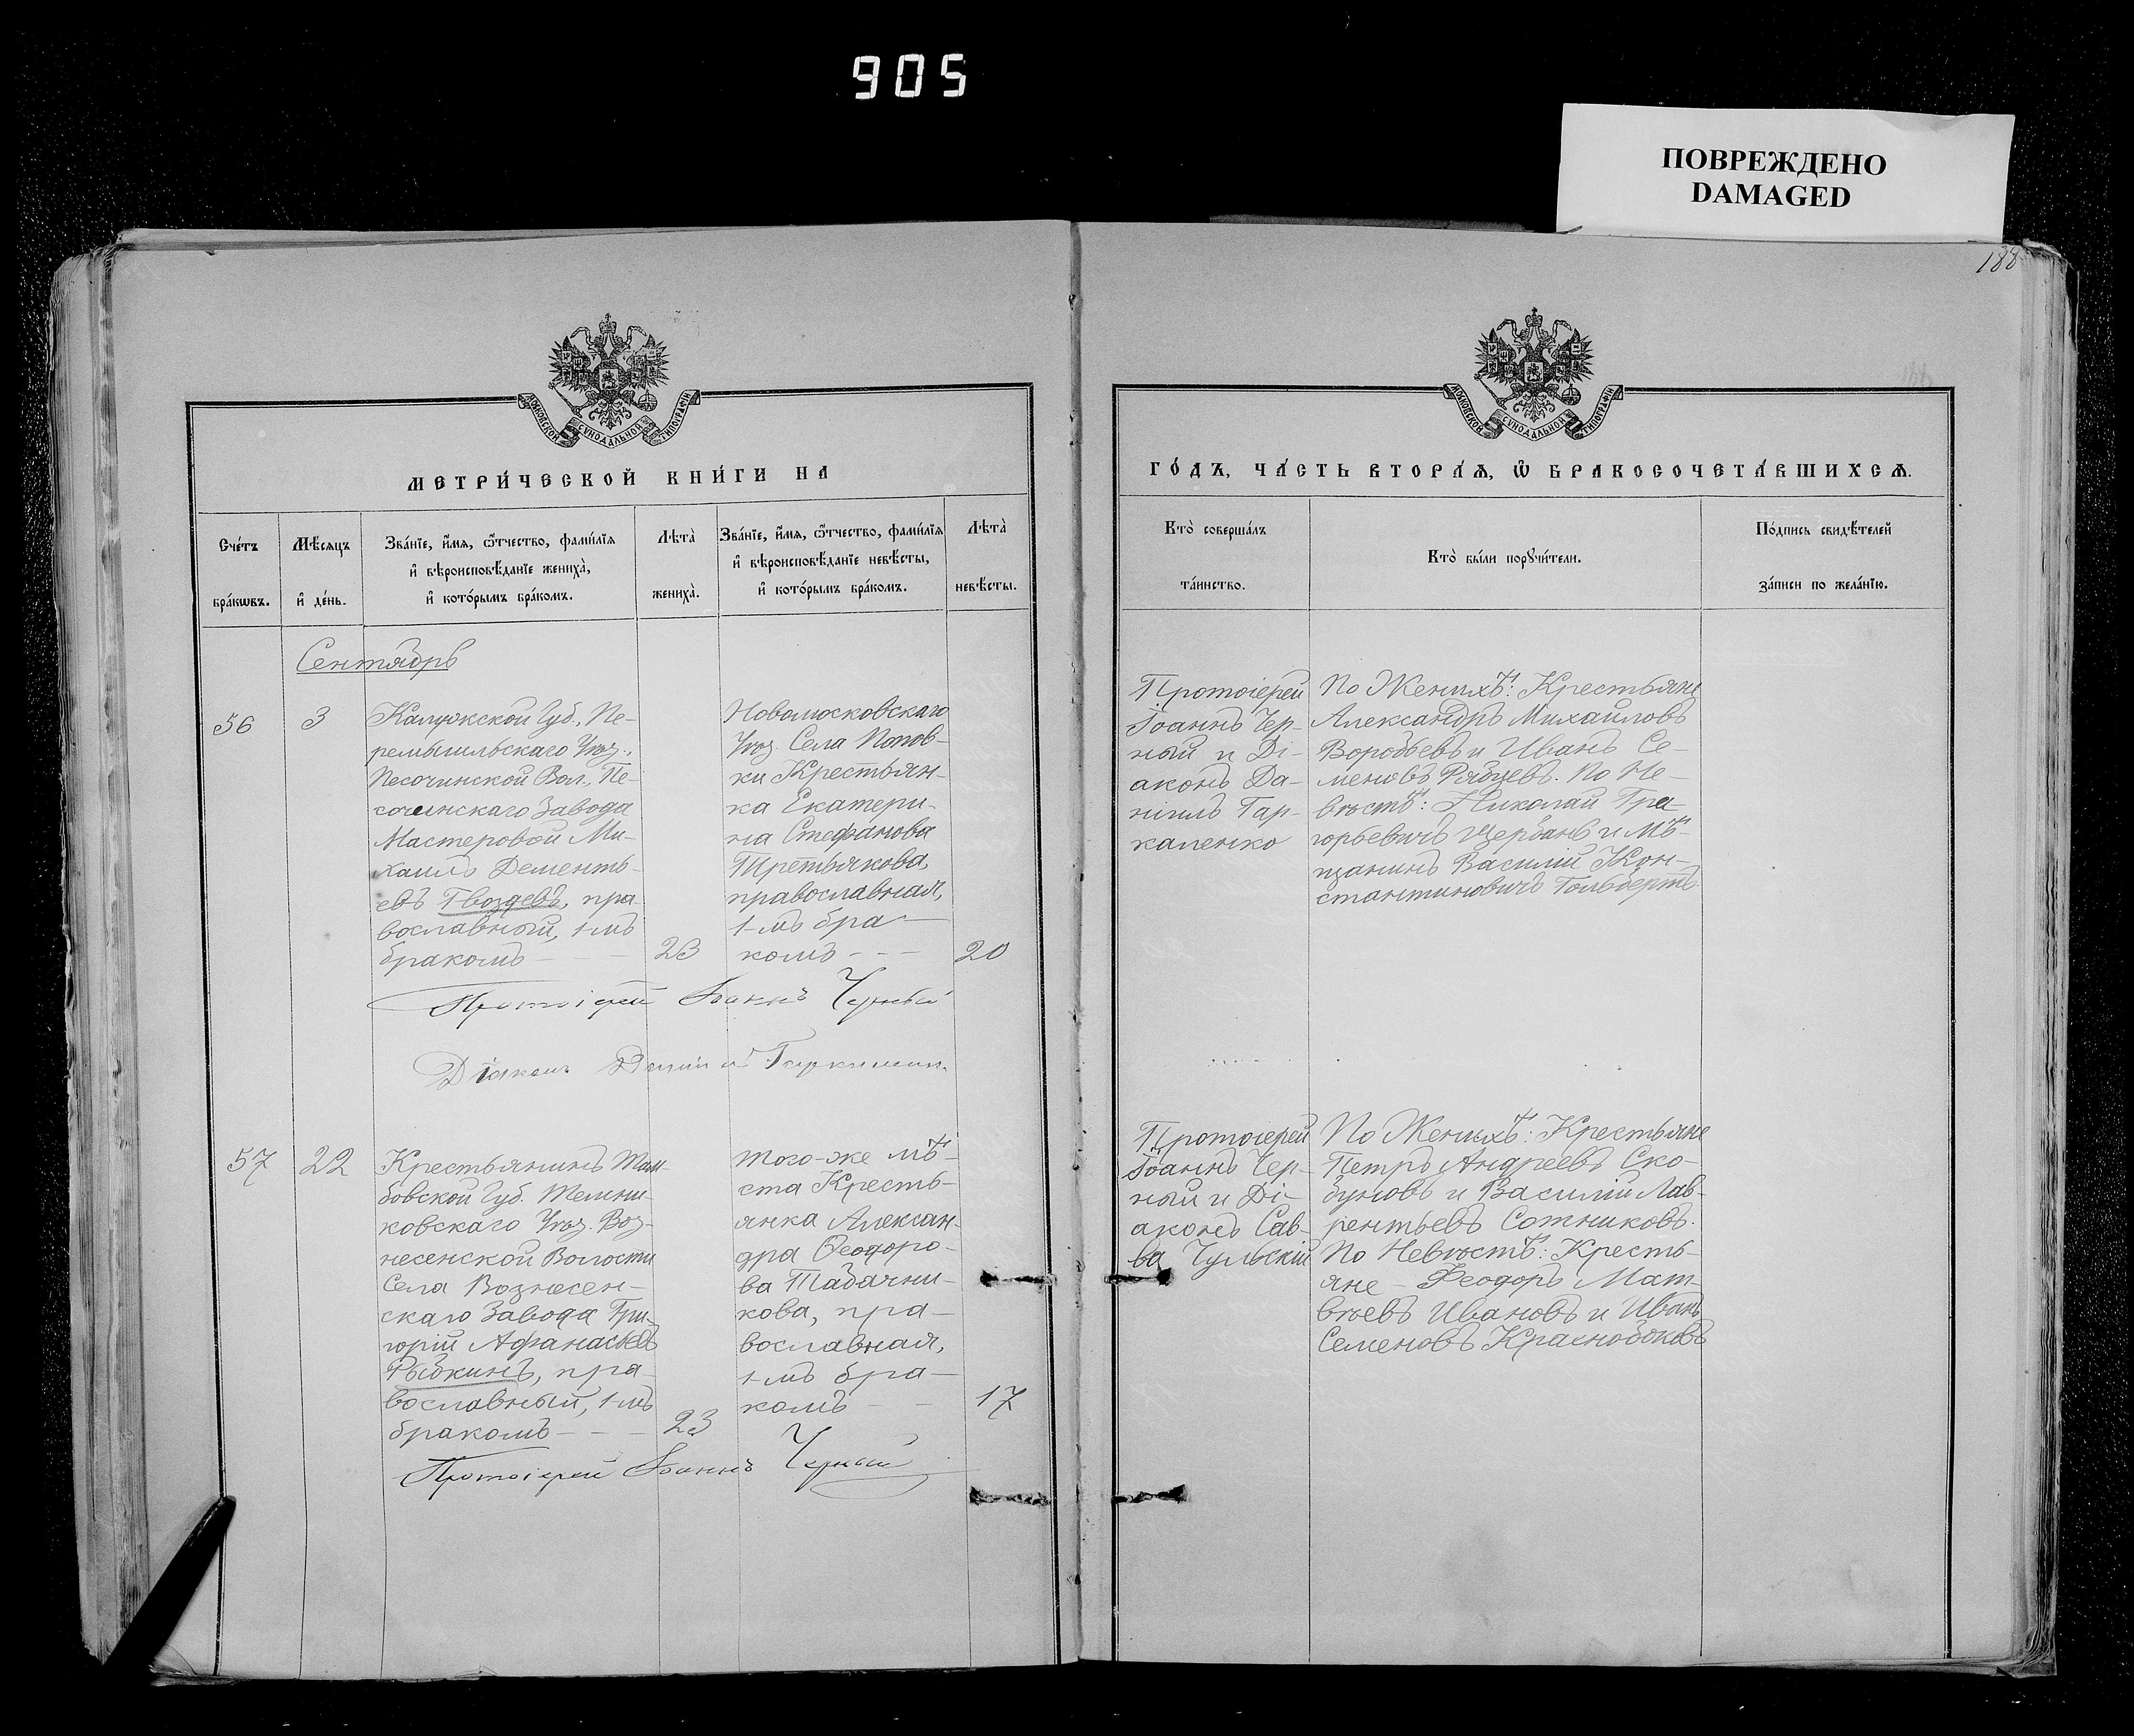 905
ПОВРЕЖДЕНО
DAMAGED
188
МОСКОВСКОЙ СѴНОДАЛЬНОЙ ТИПОГРАФІИ
МЕТРИ́ЧЕСКОЙ КНИ́ГИ НА
Сче́тъ бра́кѡвъ.
Мѣ́сяцъ и҆ де́нь.
Зва́нїе, и҆́мя, ѻ҆́тчество, фами́лїя
и҆ вѣроисповѣ́данїе жениха̀,
и҆ кото́рымъ бра́комъ.
Лѣта̀ жениха̀.
Зва́нїе, и҆́мя, ѻ҆́тчество, фами́лїя
и҆ вѣроисповѣ́данїе невѣ́сты,
и҆ кото́рымъ бра́комъ.
Лѣта̀ невѣ́сты.
Сентябрь
56
3
Калужской Губ., Пе-
ремышльскаго Уѣз.,
Песоченской Вол., Пе-
соченскаго Завода
Мастеровой Ми-
хаилъ Дементь-
евъ Гвоздевъ, пра-
вославный, 1-мъ
бракомъ - - -
23
Новомосковскаго
Уѣз. Села Попов-
ки Крестьян-
ка Екатери-
на Стефанова
Третьякова,
православная,
1-мъ бра-
комъ - - -
20
Протоіерей Іоаннъ Черный
Діаконъ Даніилъ
57
22
Крестьянинъ Там-
бовской Губ. Темни-
ковскаго Уѣз. Воз-
несенской Волости
Села Вознесен-
скаго Завода Гри-
горій Афанасьевъ
Рыбкинъ, пра-
вославный, 1-мъ
бракомъ - - -
23
того-же мѣ-
ста Кресть-
янка Алексан-
дра Ѳеодоро-
ва Табачни-
кова, пра-
вославная,
1-мъ бра-
комъ - -
17
Протоіерей Іоаннъ Черный
МОСКОВСКОЙ СѴНОДАЛЬНОЙ ТИПОГРАФІИ
ГО́ДЪ, ЧА́СТЬ ВТОРА́Ѧ, Ѡ҆ БРАКОСОЧЕТА́ВШИХСѦ.
Кто̀ соверша́лъ
та́инство.
Кто̀ бы́ли порꙋчи́тели.
По́дпись свидѣ́телей
за́писи по жела́нїю.
Протоіерей
Іоаннъ Чер-
ный и Ді-
аконъ Да-
ніилъ Гар-
каленко
По Женихѣ: Крестьяне
Александръ Михайловъ
Воробьевъ и Иванъ Се-
меновъ Рябцевъ. По Не-
вѣстѣ: Николай Гри-
горьевичъ Щербань и Мѣ-
щанинъ Василій Кон-
стантиновичъ Гольбертъ.
Протоіерей
Іоаннъ Чер-
ный и Ді-
аконъ Сав-
ва Чульскій
По Женихѣ: Крестьяне
Петръ Андреевъ Ско-
буновъ и Василій Лав-
рентьевъ Сотниковъ.
По Невѣстѣ: Кресть-
яне - Ѳеодоръ Мат-
вѣевъ Ивановъ и Иванъ
Семеновъ Краснобоковъ